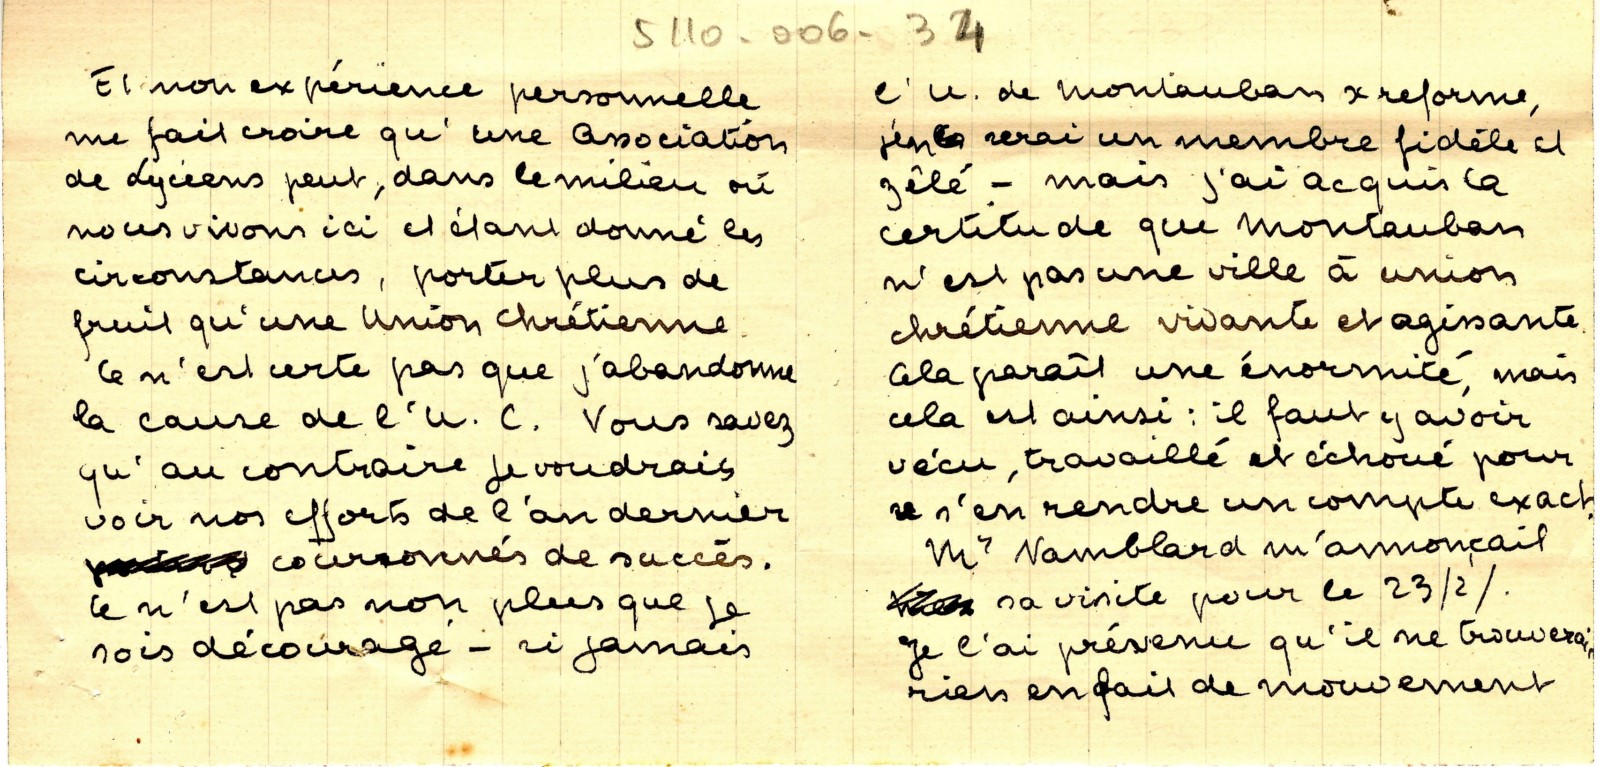 5110-006-34
Et mon expérience personnelle
me fait croire qu'une Association
de Lycéens peut, dans le milieu où
nous vivons ici et étant donné les
circonstances, porter plus de
fruit qu'une Union chrétienne
Ce n'est certe pas que j'abandonne
la cause de l'U. C. Vous savez
qu'au contraire je voudrais
voir nos efforts de l'an dernier
couronnés de succès.
Ce n'est pas non plus que je
sois découragé - si jamais
l'U. de Montauban se reforme,
j'en serai un membre fidèle et
zélé - mais j'ai acquis la
certitude que Montauban
n'est pas une ville à union
chrétienne vivante et agissante.
Cela paraît une énormité, mais
cela est ainsi : il faut y avoir
vécu, travaillé et échoué pour
s'en rendre un compte exact.
Mr Namblard m'annonçait
sa visite pour le 23/2/.
Je l'ai prévenu qu'il ne trouverai
rien en fait de mouvement